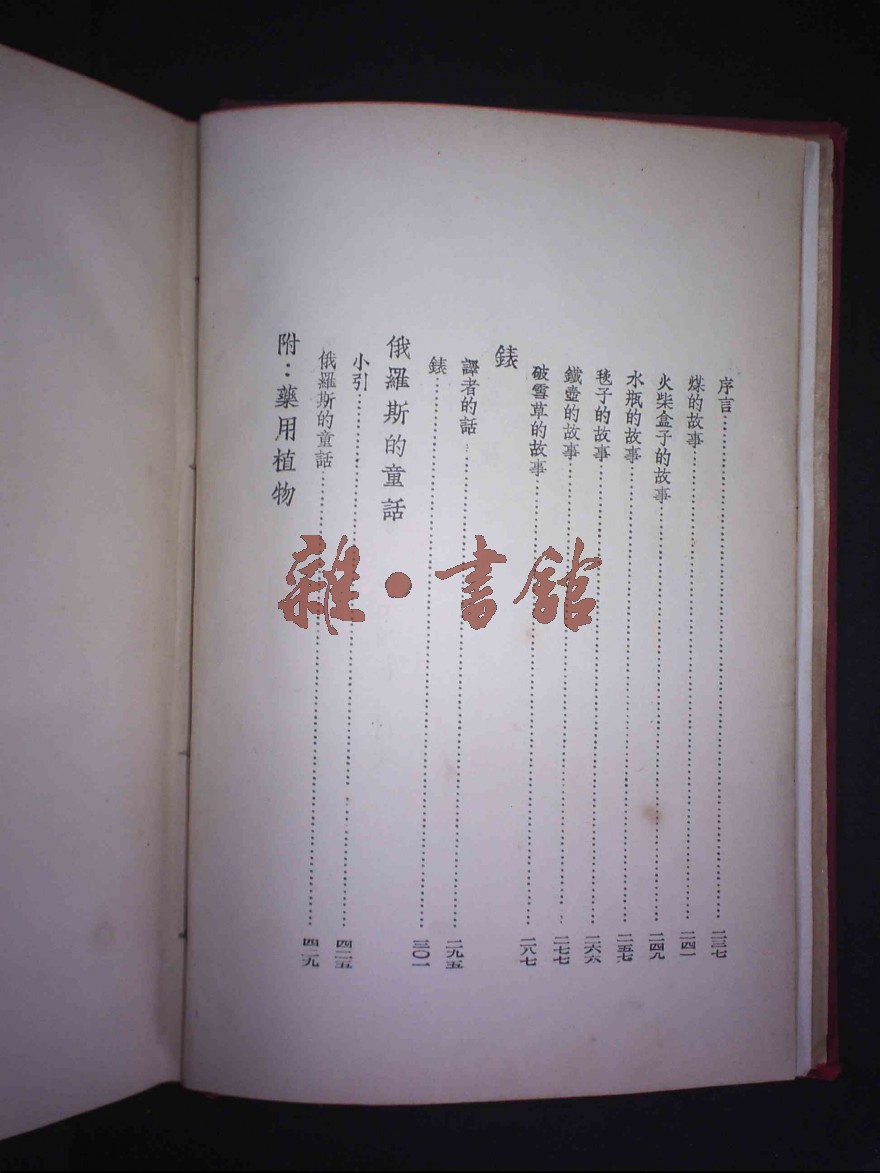 序言 二三七
煤的故事 二四一
火柴盒子的故事 二四九
水瓶的故事 二五七
毯子的故事 二六六
鐵壺的故事 二七七
破雪草的故事 二八七
錶
譯者的話 二九五
錶 三〇一
俄羅斯的童話
小引 四二五
俄羅斯的童話 四二九
附：藥用植物
雜·書館